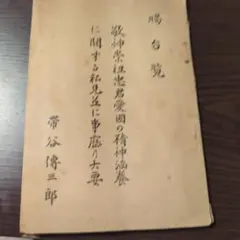 賜台覧
敬神崇祖忠君愛國の精神涵養
に関する私見並に事歴の大要
帯谷傳三郎